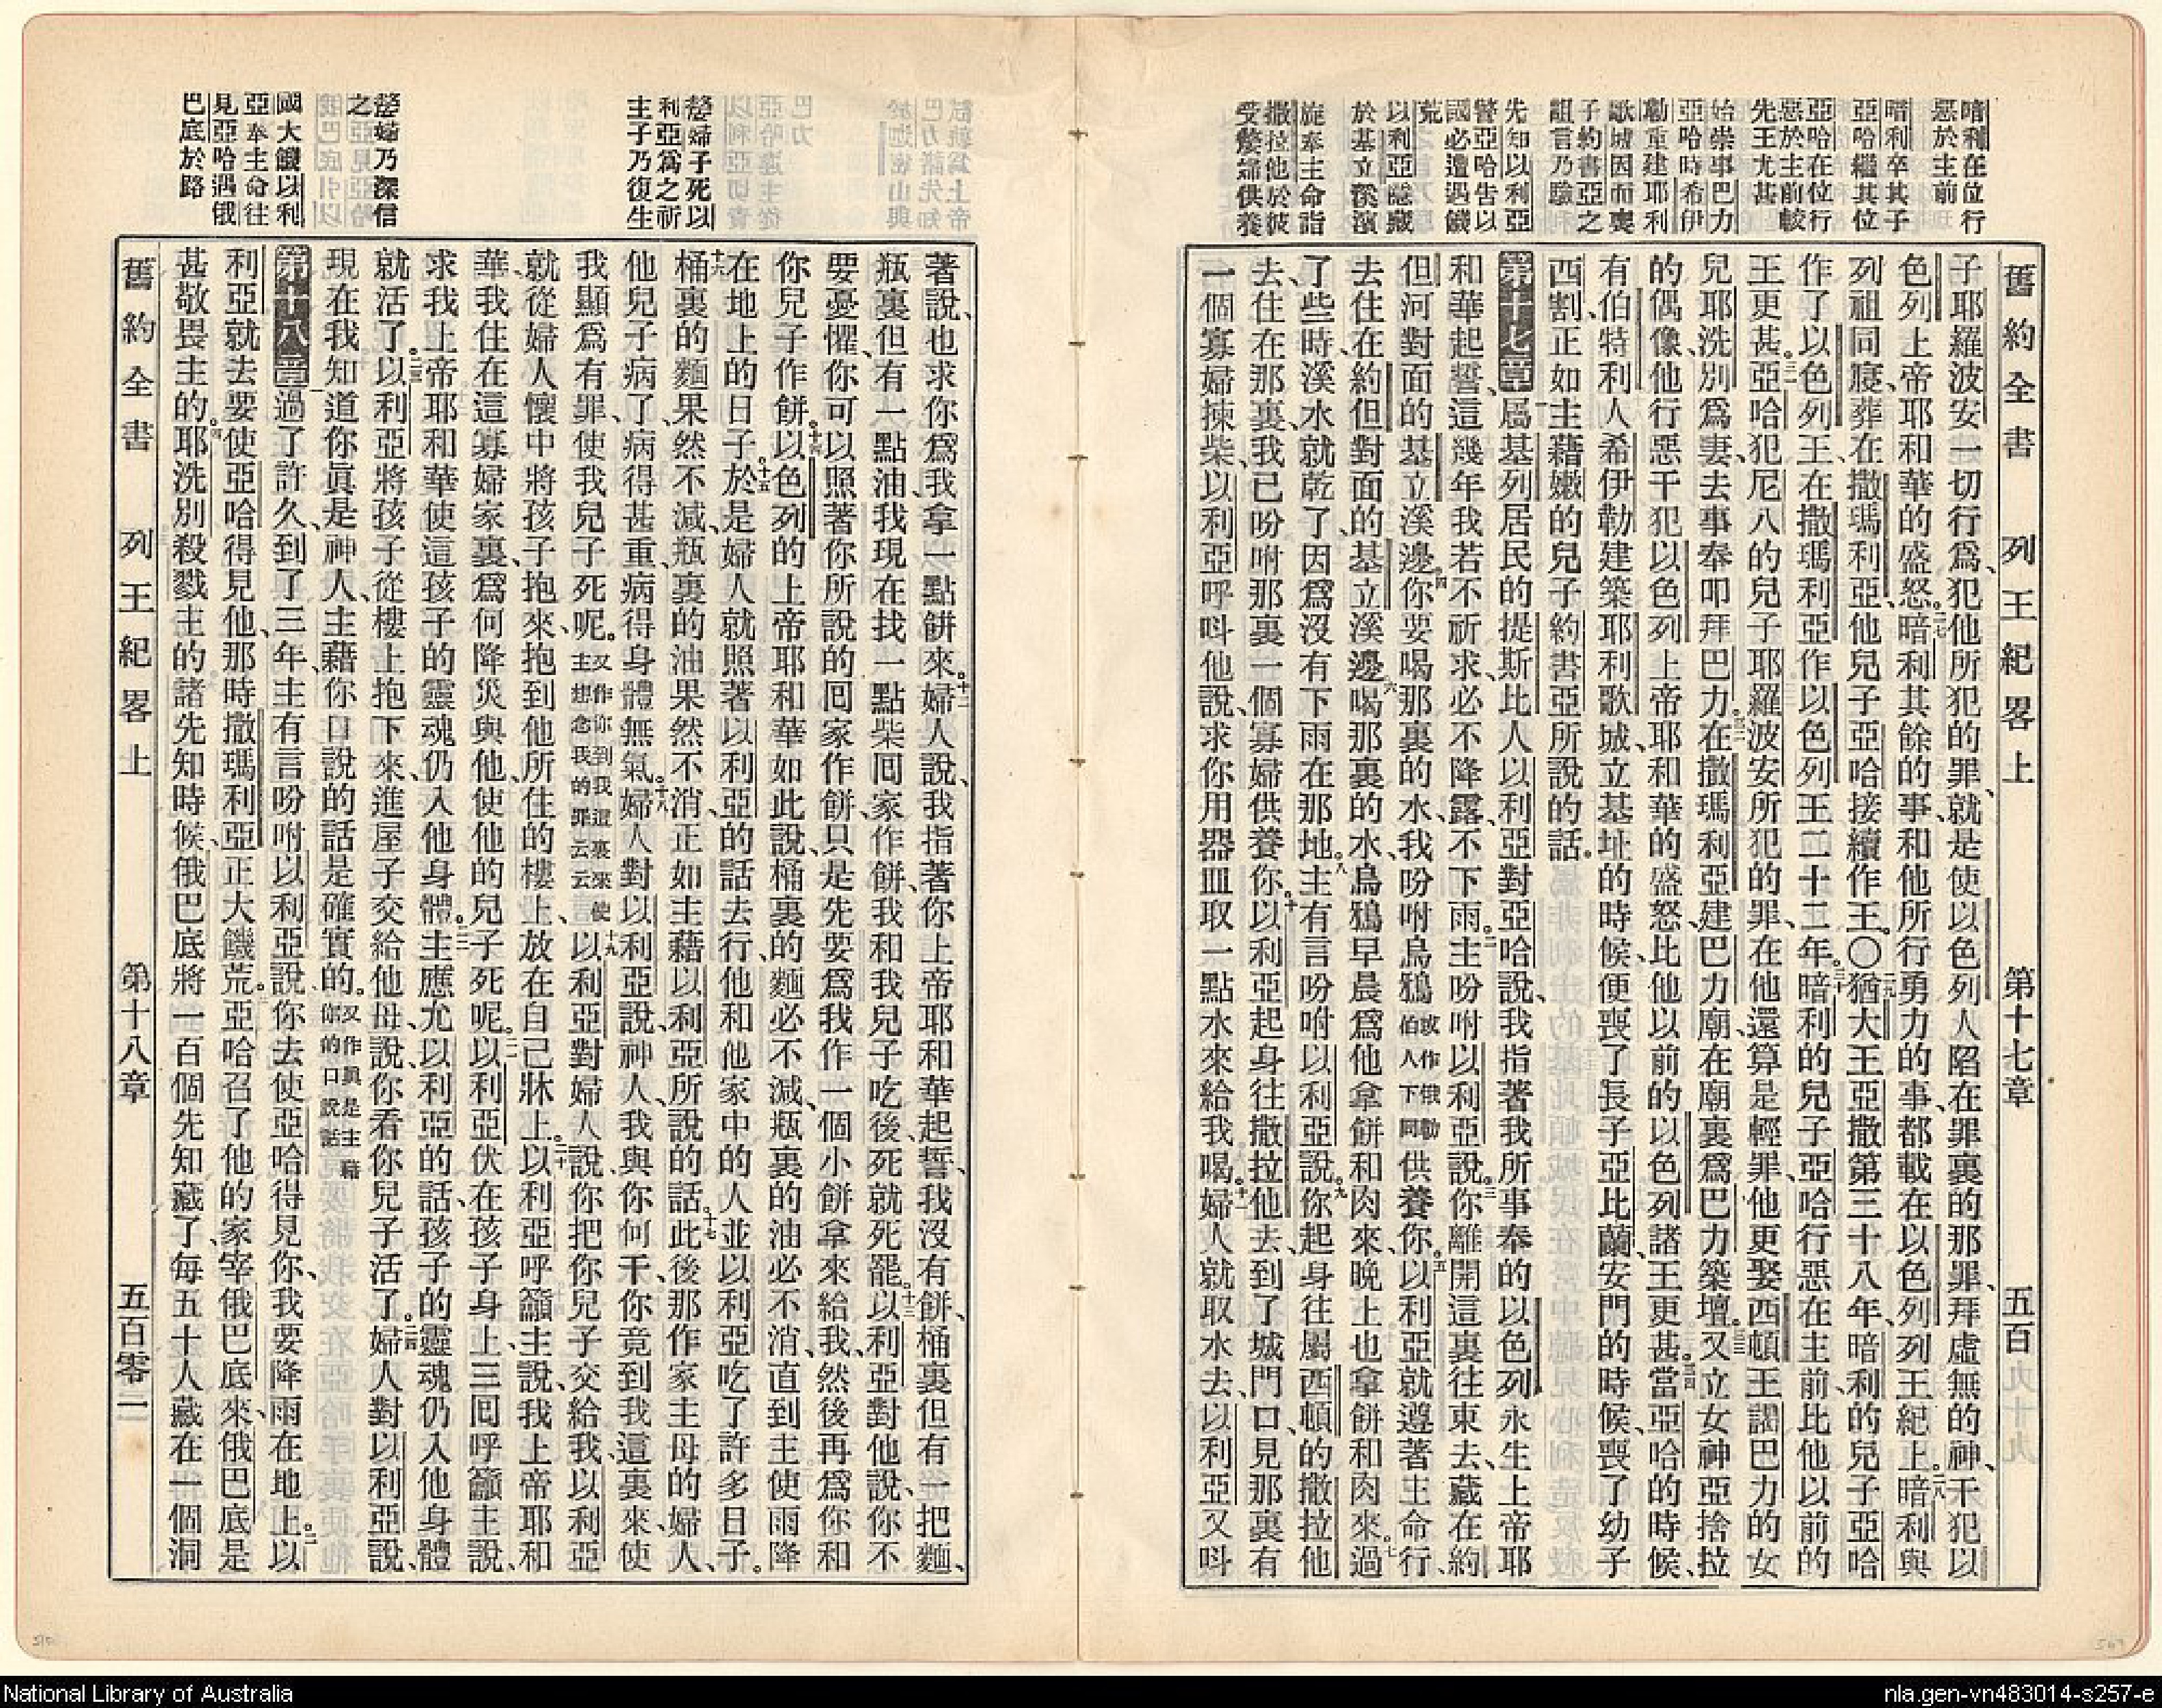 暗利在位行
惡於主前
暗利卒其子
亞哈繼其位
亞哈在位行
惡於主前較
先王尤甚
始崇事巴力
亞哈時希伊
勒重建耶利
歌城因而喪
子約書亞之
詛言乃驗
先知以利亞
警亞哈告以
國必遭遇饑
荒
以利亞隱藏
於基立溪濱
旋奉主命詣
撒拉他於彼
受嫠婦供養
舊約全書 列王紀畧上 第十七章 五百
子耶羅波安一切行爲、犯他所犯的罪、就是使以色列人陷在罪裏的那罪、拜虛無的神、干犯以
色列上帝耶和華的盛怒。二七暗利其餘的事和他所行勇力的事、都載在以色列列王紀上。二八暗利與
列祖同寢、葬在撒瑪利亞、他兒子亞哈接續作王。〇二九猶大王亞撒第三十八年、暗利的兒子亞哈
作了以色列王、在撒瑪利亞作以色列王二十二年。三十暗利的兒子亞哈行惡在主前、比他以前的
王更甚。三一亞哈犯尼八的兒子耶羅波安所犯的罪、在他還算是輕罪、他更娶西頓王謁巴力的女
兒耶洗別爲妻、去事奉叩拜巴力。三二在撒瑪利亞建巴力廟、在廟裏爲巴力築壇。三三又立女神亞捨拉
的偶像、他行惡干犯以色列上帝耶和華的盛怒、比他以前的以色列諸王更甚。三四當亞哈的時候、
有伯特利人希伊勒建築耶利歌城、立基址的時候、便喪了長子亞比蘭、安門的時候、喪了幼子
西割、正如主藉嫩的兒子約書亞所說的話。
第十七章一屬基列居民的提斯比人以利亞對亞哈說、我指著我所事奉的以色列永生上帝耶
和華起誓、這幾年我若不祈求、必不降露、不下雨。二主吩咐以利亞說。三你離開這裏往東去、藏在約
但河對面的基立溪邊。四你要喝那裏的水、我吩咐烏鴉或作俄勒伯人下同供養你。五以利亞就遵著主命行、
去住在約但對面的基立溪邊。六喝那裏的水、烏鴉早晨爲他拿餅和肉來、晚上也拿餅和肉來。七過
了些時、溪水就乾了、因爲沒有下雨在那地。八主有言吩咐以利亞說。九你起身往屬西頓的撒拉他
去、住在那裏、我已吩咐那裏一個寡婦供養你。十以利亞起身往撒拉他去、到了城門口、見那裏有
一個寡婦揀柴、以利亞呼呌他說、求你用器皿取一點水來給我喝。十一婦人就取水去、以利亞又呌
嫠婦子死以
利亞爲之祈
主子乃復生
嫠婦乃深信
之
國大饑以利
亞奉主命往
見亞哈遇俄
巴底於路
著說、也求你爲我拿一點餅來。十二婦人說、我指著你上帝耶和華起誓、我沒有餅、桶裏但有一把麵、
瓶裏但有一點油、我現在找一點柴回家作餅、我和我兒子吃後、死就死罷。十三以利亞對他說、你不
要憂懼、你可以照著你所說的回家作餅、只是先要爲我作一個小餅拿來給我、然後再爲你和
你兒子作餅。十四以色列的上帝耶和華如此說、桶裏的麵必不減、瓶裏的油必不消、直到主使雨降
在地上的日子。十五於是婦人就照著以利亞的話去行、他和他家中的人並以利亞吃了許多日子。
十六桶裏的麵果然不減、瓶裏的油果然不消、正如主藉以利亞所說的話。十七此後那作家主母的婦人、
他兒子病了、病得甚重、病得身體無氣。十八婦人對以利亞說、神人、我與你何干、你竟到我這裏來、使
我顯爲有罪、使我兒子死呢。又作你到我這裏來使主想念我的罪云云十九以利亞對婦人說、你把你兒子交給我、以利亞
就從婦人懷中將孩子抱來、抱到他所住的樓上、放在自己牀上。二十以利亞呼籲主說、我上帝耶和
華、我住在這寡婦家裏、爲何降災與他、使他的兒子死呢。二一以利亞伏在孩子身上、三回呼籲主說、
求我上帝耶和華使這孩子的靈魂仍入他身體。二二主應允以利亞的話、孩子的靈魂仍入他身體
就活了。二三以利亞將孩子從樓上抱下來、進屋子交給他母、說、你看你兒子活了。二四婦人對以利亞說、
現在我知道你眞是神人、主藉你口說的話是確實的。又作眞是主藉你的口說話
第十八章一過了許久、到了三年、主有言吩咐以利亞說、你去使亞哈得見你、我要降雨在地上。二以
利亞就去要使亞哈得見他、那時撒瑪利亞正大饑荒。三亞哈召了他的家宰俄巴底來、俄巴底是
甚敬畏主的。四耶洗別殺戮主的諸先知時候、俄巴底將一百個先知藏了、每五十人藏在一個洞
舊約全書 列王紀畧上 第十八章 五百零二
National Library of Australia
nla.gen-vn483014-s257-e